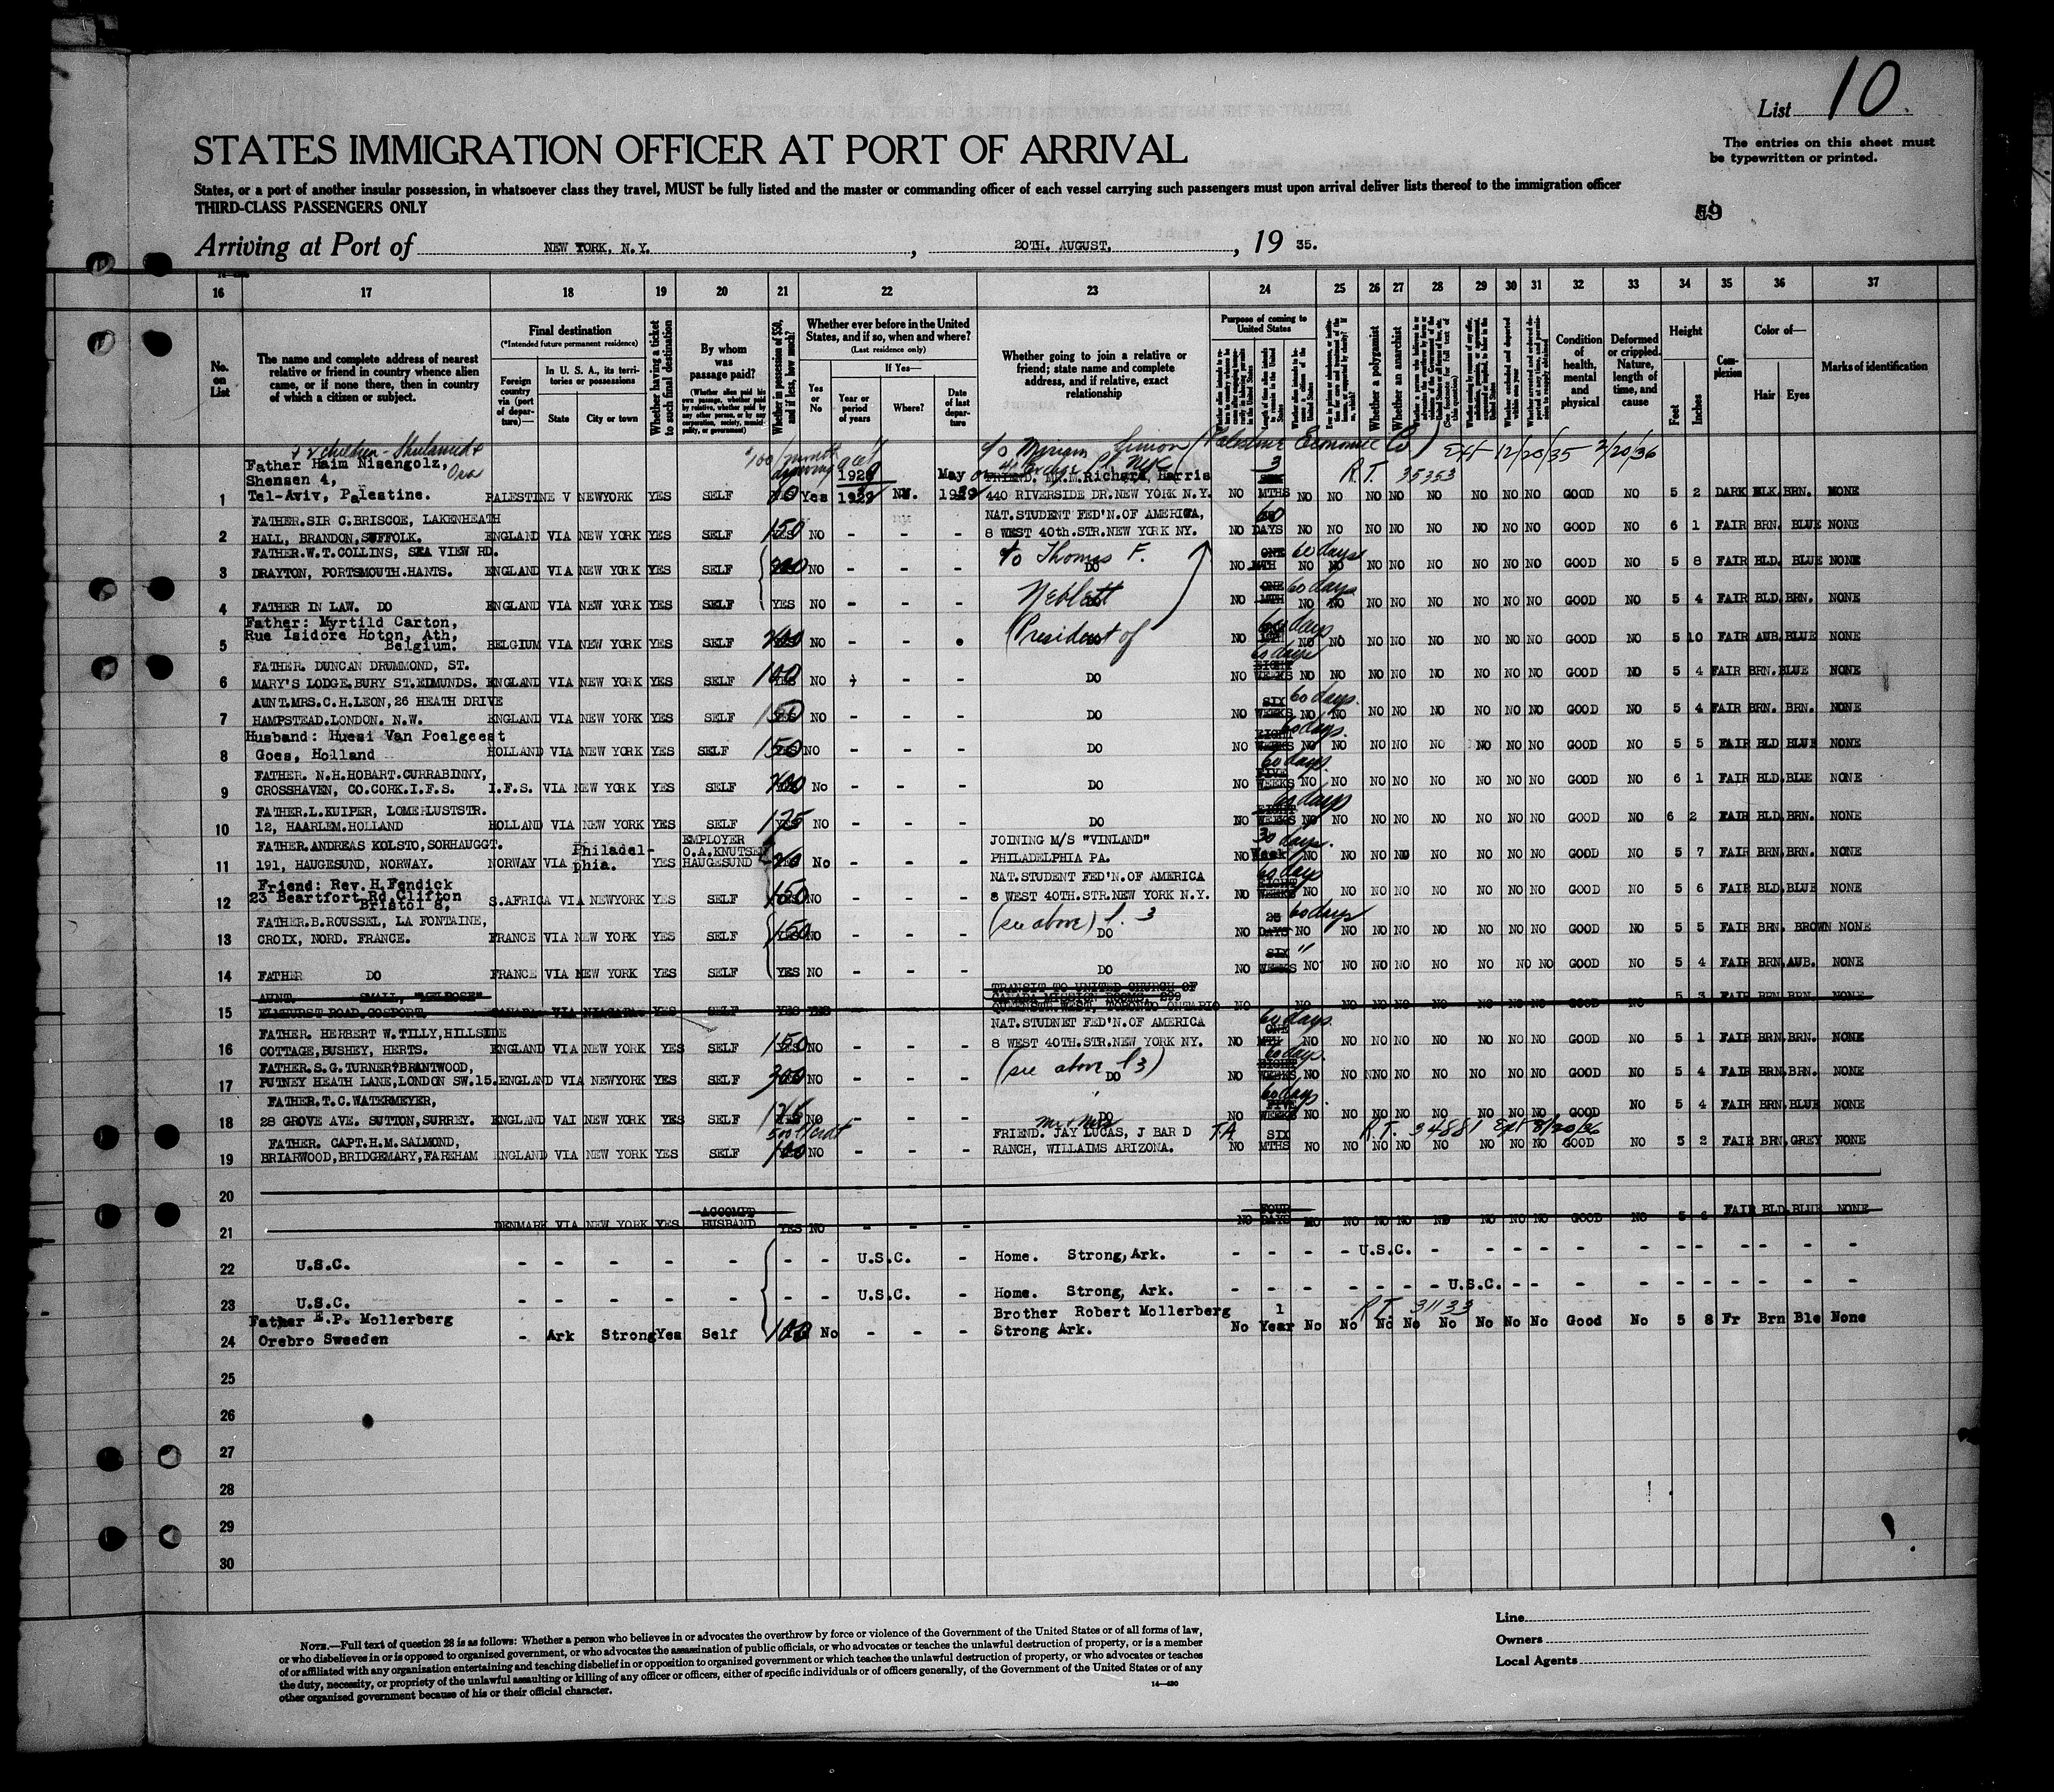 List 10
STATES IMMIGRATION OFFICER AT PORT OF ARRIVAL
The entries on this sheet must
be typewritten or printed.
States, or a port of another insular possession, in whatsoever class they travel, MUST be fully listed and the master or commanding officer of each vessel carrying such passengers must upon arrival deliver lists thereof to the immigration officer
THIRD-CLASS PASSENGERS ONLY
59
Arriving at Port of NEW YORK, N.Y. , 20TH. AUGUST. , 19 35.
16 17 18 19 20 21 22 23 24 25 26 27 28 29 30 31 32 33 34 35 36 37
No. on List
The name and complete address of nearest relative or friend in country whence alien came, or if none there, then in country of which a citizen or subject.
Final destination
(*Intended future permanent residence)
Foreign country via (port of departure)—
In U. S. A., its territories or possessions
State City or town
Whether having a ticket to such final destination
By whom was passage paid?
(Whether alien paid his own passage, whether paid by relative, whether paid by any other person, or by any corporation, society, municipality, or government)
Whether in possession of $50, and if less, how much?
Whether ever before in the United States, and if so, when and where?
(Last residence only)
Yes or No
If Yes—
Year or period of years
Where?
Date of last departure
Whether going to join a relative or friend; state name and complete address, and if relative, exact relationship
Purpose of coming to United States
Whether a polygamist
Whether an anarchist
Condition of health, mental and physical
Deformed or crippled. Nature, length of time, and cause
Height
Feet Inches
Complexion
Color of—
Hair Eyes
Marks of identification
+ 2 children - Shulamed +
c/o Miriam (Palestine Economic Co) Ext 12/20/35 3/20/36
Father Haim Nisengolz,
Shensen 4,
FRIEND. MR.M. Richard Harris 3 R.T. 35353
1 Tel-Aviv, Palestine. PALESTINE V NEWYORK YES SELF 80 Yes NY. 440 RIVERSIDE DR.NEW YORK N.Y. NO MTHS NO NO NO NO NO NO NO NO GOOD NO 5 2 DARK BLK.BRN. NONE
FATHER.SIR C.BRISCOE, LAKENHEATH NAT.STUDENT FED'N.OF AMERICA, 60
2 HALL, BRANDON,SUFFOLK. ENGLAND VIA NEW YORK YES SELF 150 NO - - - 8 WEST 40th.STR.NEW YORK NY. NO DAYS NO NO NO NO NO NO NO NO GOOD NO 6 1 FAIR BRN. BLUE NONE
FATHER.W.T.COLLINS, SEA VIEW RD. c/o Thomas F. ONE 60 days
3 DRAYTON, PORTSMOUTH.HANTS. ENGLAND VIA NEW YORK YES SELF NO - - - DO NO MTH NO NO NO NO NO NO NO NO GOOD NO 5 8 FAIR BLD. BLUE NONE
Neblett ONE 60 days
4 FATHER IN LAW. DO ENGLAND VIA NEW YORK YES SELF YES NO - - - NO MTH NO NO NO NO NO NO NO NO GOOD NO 5 4 FAIR BLD.BRN. NONE
Father: Myrtild Carton,
Rue Isidore Hoton, Ath, (President of 60 days
5 Belgium. BELGIUM VIA NEW YORK YES SELF 200 NO - - NO NO NO NO NO NO NO NO NO GOOD NO 5 10 FAIR AUB.BLUE NONE
FATHER. DUNCAN DRUMMOND, ST. 60 days EIGHT
6 MARY'S LODGE.BURY ST.EDMUNDS. ENGLAND VIA NEW YORK YES SELF 100 NO - - - DO NO WEEKS NO NO NO NO NO NO NO NO GOOD NO 5 4 FAIR BRN.BLUE NONE
AUNT.MRS.C.H.LEON,26 HEATH DRIVE SIX 60 days.
7 HAMPSTEAD.LONDON. N.W. ENGLAND VIA NEW YORK YES SELF 150 NO - - - DO NO WEEKS NO NO NO NO NO NO NO NO GOOD NO 5 4 FAIR BRN. BRN. NONE
Husband: Huesi Van Poelgeest EIGHT 60 days.
8 Goes, Holland HOLLAND VIA NEW YORK YES SELF 150 NO - - - DO NO WEEKS NO NO NO NO NO NO NO NO GOOD NO 5 5 FAIR BLD BLUE NONE
FATHER. N.H.HOBART.CURRABINNY, 60 days FIVE
9 CROSSHAVEN, CO.CORK.I.F.S. I.F.S. VIA NEW YORK YES SELF 200 No - - - DO NO WEEKS NO NO NO NO NO NO NO NO GOOD NO 6 1 FAIR BLD.BLUE NONE
FATHER.L.KUIPER, LOMERLUSTSTR. EIGHT 60 days
10 12, HAARLEM.HOLLAND HOLLAND VIA NEW YORK YES SELF 125 NO - - - DO NO WEEKS NO NO NO NO NO NO NO NO GOOD NO 6 2 FAIR BLD.BRN. NONE
FATHER.ANDREAS KOLSTO,SORHAUGGT. Philadel- EMPLOYER O.A.KNUTSEN JOINING M/S "VINLAND" 30 days.
11 191, HAUGESUND, NORWAY. NORWAY VIA phia. YES HAUGESUND No - - - PHILADELPHIA PA. NO Week NO NO NO NO NO NO NO NO GOOD NO 5 7 FAIR BRN.BRN. NONE
Friend: Rev. H.Fendick NAT.STUDENT FED'N.OF AMERICA 60 days EIGHT
23 Beartfort Rd.Clifton
12 Bristol 8, S.AFRICA VIA NEWYORK YES SELF 150 NO - - - 8 WEST 40TH.STR.NEW YORK N.Y. NO WEEKS NO NO NO NO NO NO NO NO GOOD NO 5 6 FAIR BLD.BLUE NONE
FATHER.B.ROUSSEL, LA FONTAINE, (see above) l. 3 25 60 days
13 CROIX, NORD. FRANCE. FRANCE VIA NEW YORK YES SELF 150 NO - - - DO NO DAYS NO NO NO NO NO NO NO NO GOOD NO 5 5 FAIR BRN. BROWN NONE
SIX "
14 FATHER DO FRANCE VIA NEW YORK YES SELF YES NO - - - DO NO WEEKS NO NO NO NO NO NO NO NO GOOD NO 5 4 FAIR BRN.AUB. NONE
AUNT. SMALL, "MELROSE" TRANSIT TO UNITED CHURCH OF
CANADA MISSION ROOMS, 299
15 ELMHURST ROAD.GOSPORT. CANADA VIA NIAGARA SELF YES YES QUEENSTR.WEST, TORONTO ONTARIO NO NO NO NO NO NO NO NO NO GOOD NO 5 3 FAIR BRN BRN. NONE
FATHER. HERBERT W.TILLY,HILLSIDE NAT.STUDNET FED'N.OF AMERICA 60 days ONE
16 COTTAGE,BUSHEY, HERTS. ENGLAND VIA NEW YORK YES SELF 150 NO - - - 8 WEST 40TH.STR.NEW YORK NY. NO MTH NO NO NO NO NO NO NO NO GOOD NO 5 1 FAIR BRN.BRN. NONE
FATHER.S.G.TURNER?BRANTWOOD, (see above l3) 60 days EIGHT
17 PUTNEY HEATH LANE,LONDON SW.15. ENGLAND VIA NEWYORK YES SELF 300 NO - - - DO NO WEEKS NO NO NNO NO NO NO NO NO GOOD NO 5 4 FAIR BRN.BRN. NONE
FATHER.T.C.WATERMEYER, 60 days. FIVE
18 28 GROVE AVE. SUTTON,SURREY. ENGLAND VAI NEW YORK YES SELF 125 NO - - - DO NO WEEKS NO NO NO NO NO NO NO NO GOOD NO 5 4 FAIR BRN.BLUE NONE
FATHER. CAPT.H.M.SALMOND, FRIEND. JAY LUCAS, J BAR D T.A. SIX R.T. 34881 Ext 8/20/36
19 BRIARWOOD,BRIDGEMARY,FAREHAM ENGLAND VIA NEW YORK YES SELF 100 NO - - - RANCH, WILLAIMS ARIZONA. NO MTHS NO NO NO NO NO NO NO NO GOOD NO 5 2 FAIR BRN.GREY NONE
20
ACCOMPD FOUR
21 DENMARK VIA NEW YORK YES HUSBAND YES NO - - - NO DAYS NO NO NO NO NO NO NO NO GOOD NO 5 6 FAIR BLD.BLUE NONE
22 U.S.C. - - - - - - - U.S.C. - Home. Strong,Ark. - - - - U.S.C. - - - - - - - - - - - -
23 U.S.C. - - - - - - - U.S.C. - Home. Strong, Ark. - - - - - - - U.S.C. - - - - - - - - - -
Father E.P. Mollerberg Brother Robert Mollerberg 1 R.T. 31133
24 Orebro Sweeden - Ark Strong Yes Self 100 No - - - Strong Ark. No Year No No No No No No No No Good No 5 8 Fr Brn Ble None
25
26
27
28
29
30
Line
Owners
Local Agents
NOTE.—Full text of question 28 is as follows: Whether a person who believes in or advocates the overthrow by force or violence of the Government of the United States or of all forms of law,
or who disbelieves in or is opposed to organized government, or who advocates the assassination of public officials, or who advocates or teaches the unlawful destruction of property, or is a member
of or affiliated with any organization entertaining and teaching disbelief in or opposition to organized government or which teaches the unlawful destruction of property, or who advocates or teaches
the duty, necessity, or propriety of the unlawful assaulting or killing of any officer or officers, either of specific individuals or of officers generally, of the Government of the United States or of any
other organized government because of his or their official character.
14—430